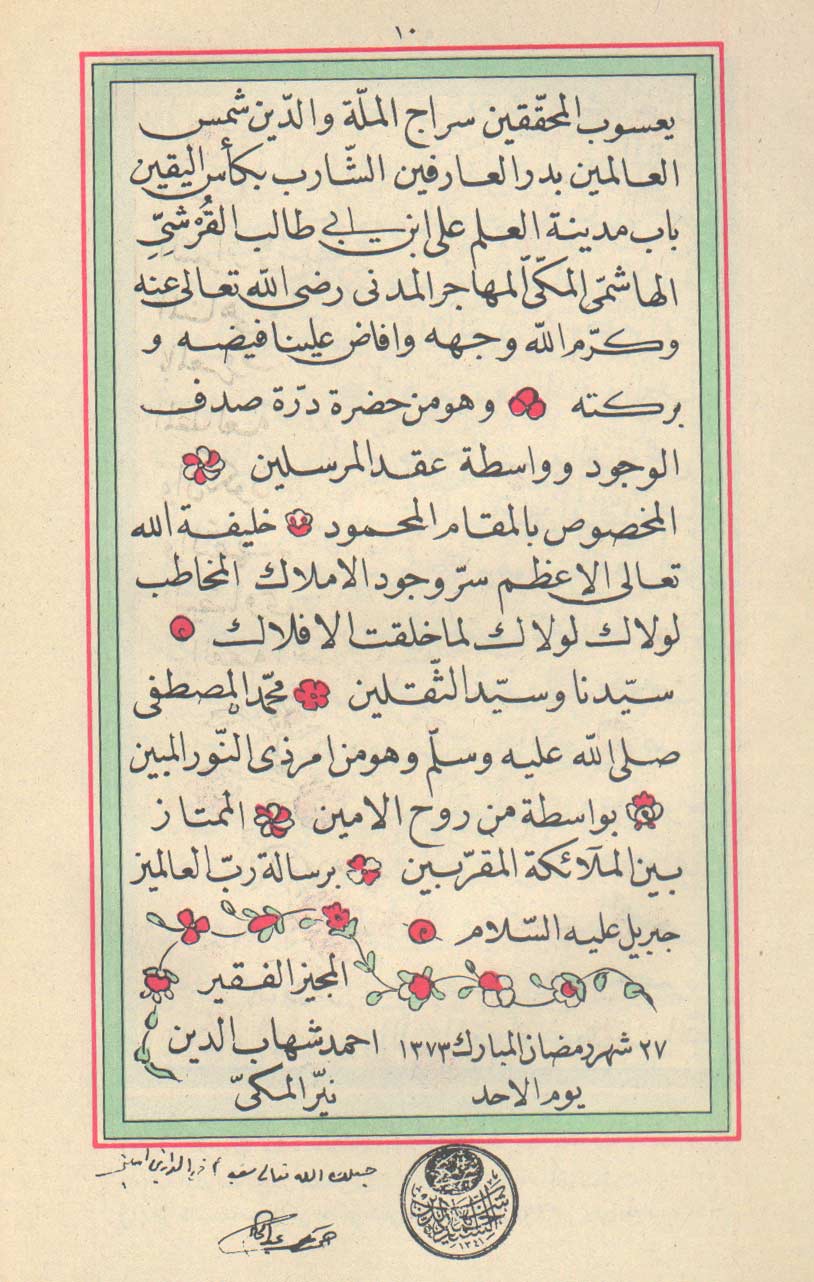 ١٠
يعسوب المحقّقين سراج الملّة والدّين شمس
العالمين بدر العارفين الشّارب بكأس اليقين
باب مدينة العلم على ابن ابى طالب القُرشِىِّ
الهاشمّى المكّىّ المهاجر المدنى رضى الله تعالى عنه
وكرّم الله وجهه وافاض علينا فيضه و
بركته وهو من حضرة درّة صدف
الوجود وواسطة عقد المرسلين
المخصوص بالمقام المحمود خليفة الله
تعالى الاعظم سرّ وجود الاملاك المخاطب
لولاك لولاك لما خلقت الافلاك
سيّدنا وسيّد الثّقلين محمّد المصطفى
صلى الله عليه وسلّم وهو من امر ذى النّور المبين
بواسطة من روح الامين الممتاز
بين الملآئكة المقرّبين برسالة ربّ العالمين
جبريل عليه السّلام
المجيز الفقير
٢٧ شهر رمضان المبارك ١٣٧٣ احمد شهاب الدين
يوم الاحد نيّر المكىّ
الله تعالى
١٣٤١